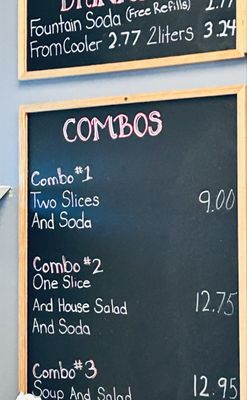 Fountain Soda (Free Refills) 2.77
From Cooler 2.77 2liters 3.24
COMBOS
Combo #1
Two Slices 9.00
And Soda
Combo #2
One Slice
And House Salad 12.75
And Soda
Combo #3
Soup And Salad 12.95